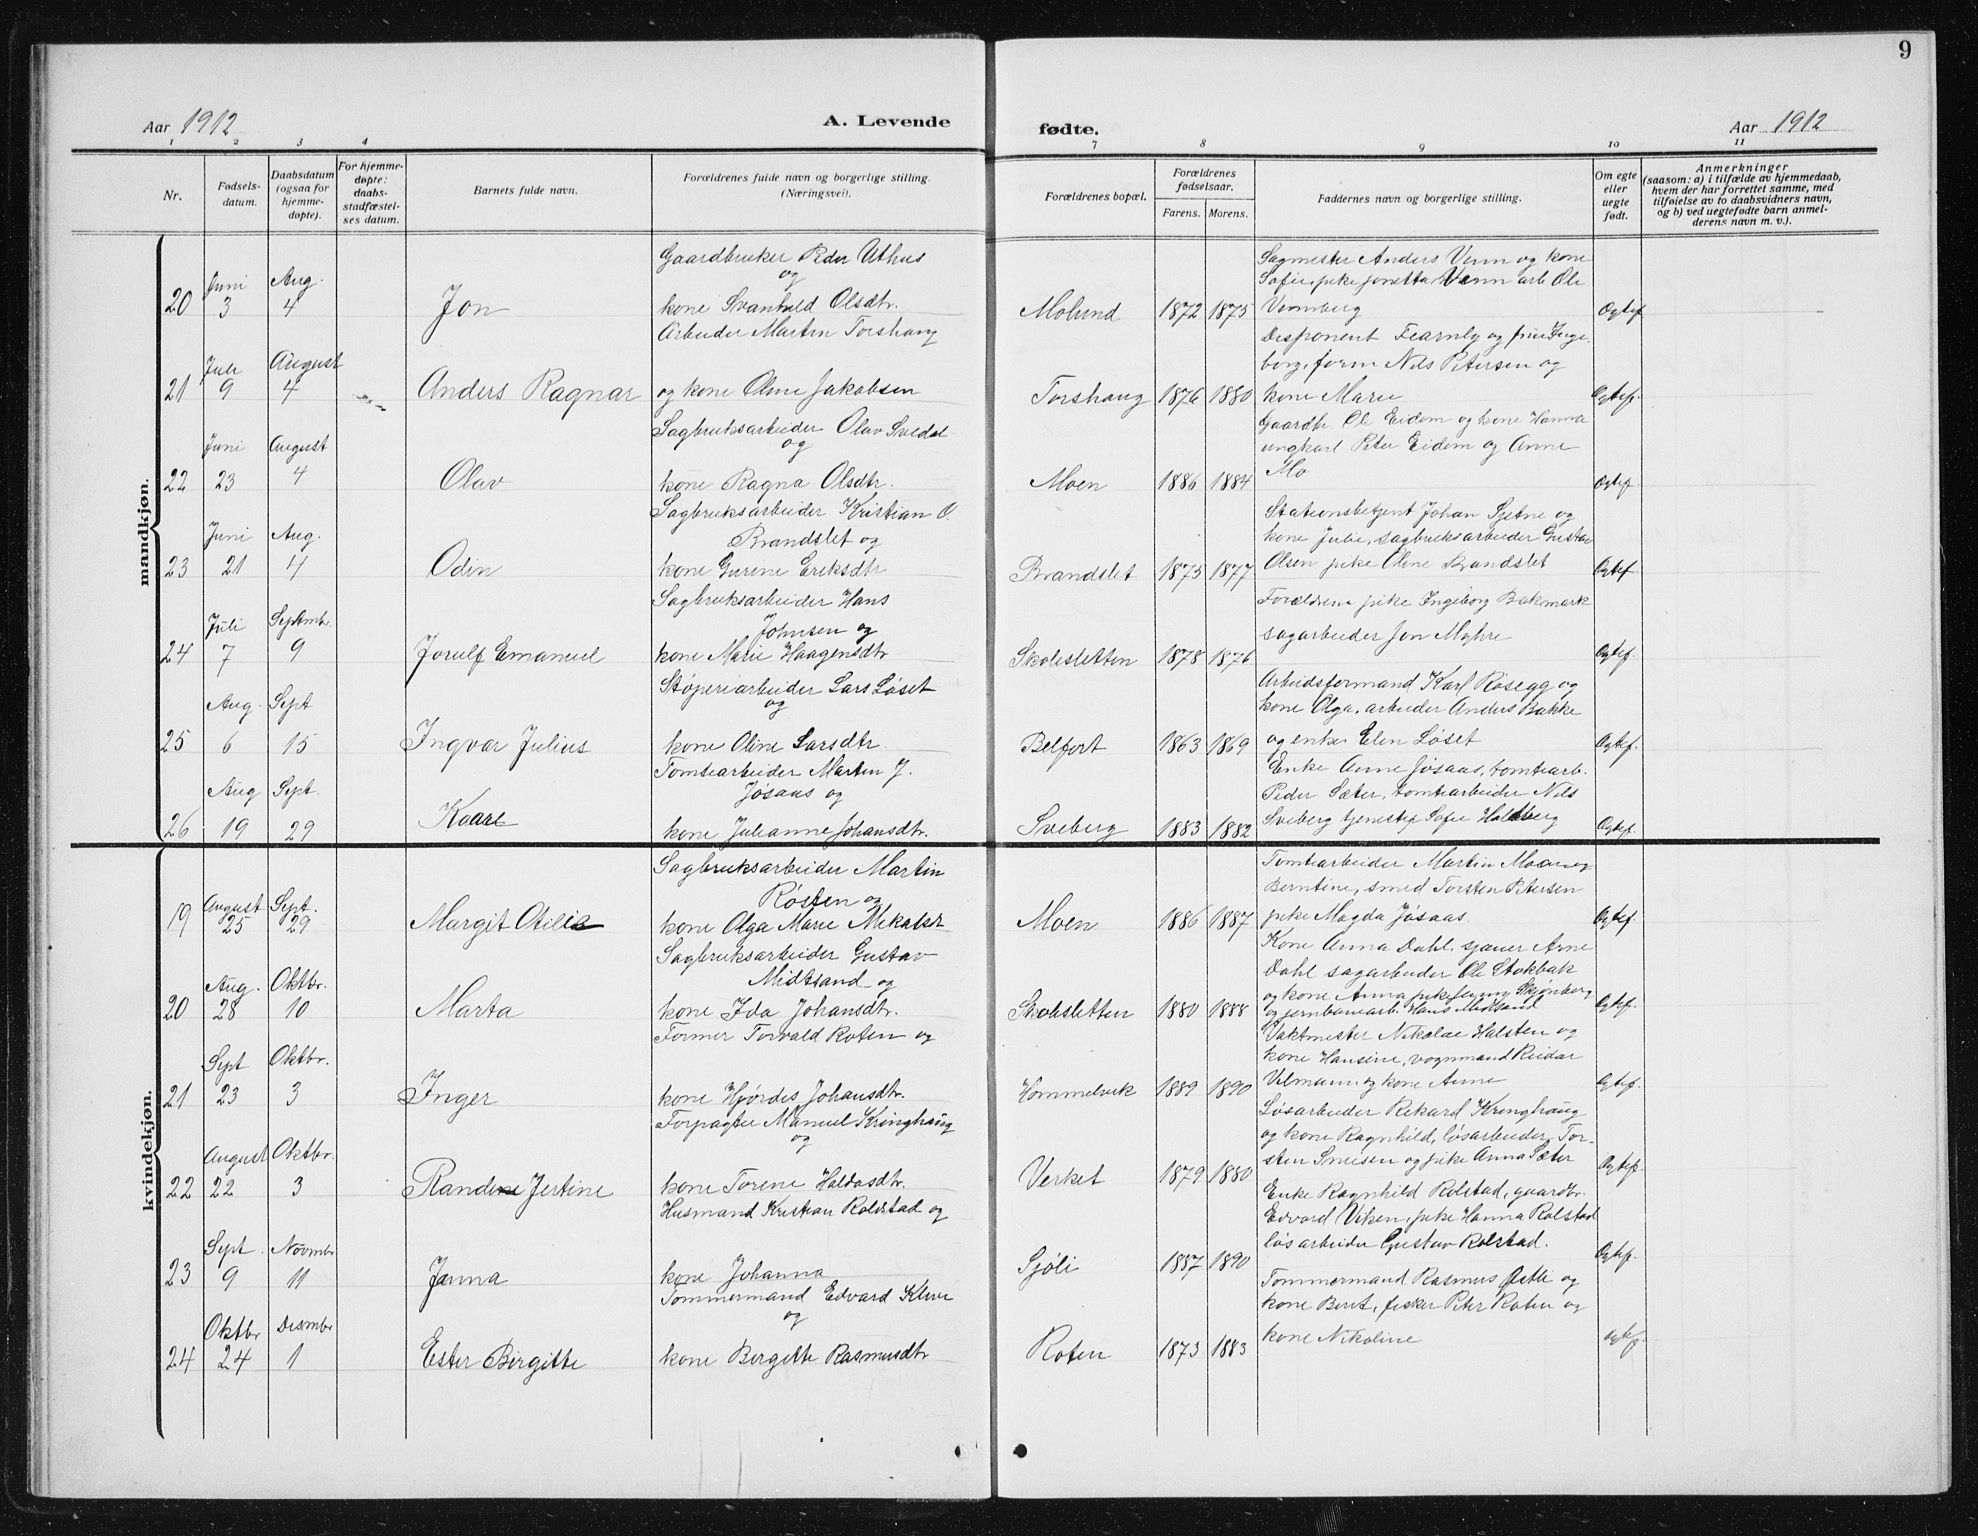 9
Aar 1912
A. Levende
fødte.
Aar 1912
1 2 3 4 7 8 9 10 11
Nr.
Fødsels-
datum.
Daabsdatum
(ogsaa for
hjemme-
døpte).
For hjemme-
døpte:
daabs-
stadfæstel-
ses datum.
Barnets fulde navn.
Forældrenes fulde navn og borgerlige stilling.
(Næringsvei).
Forældrenes bopæl.
Forældrenes
fødselsaar.
Farens. Morens.
Faddernes navn og borgerlige stilling.
Om egte
eller
uegte
født.
Anmerkninger
(saasom: a) i tilfælde av hjemmedaab,
hvem der har forrettet samme, med
tilføielse av to daabsvidners navn,
og b) ved uegtefødte barn anmel-
derens navn m. v.).
mandkjøn.
20
Juni
3
Aug.
4
Jon
Gaardbruker Peder Uthus
og
kone Svanhild Olsdtr.
Molund
1872 1875
Sagmester Anders Venn og kone
Sofie, pike Jonetta Venn arb Ole
Vennberg
Egtef
21
Juli
9
August
4
Anders Ragnar
Arbeider Martin Torshaug
og kone Oline Jakobsen
Torshaug
1876 1880
Disponent Fearnly og frue Inge
borg, form Nils Petersen og
kone Marie
Egtef.
22
Juni
23
August
4
Olav
Sagbruksarbeider Olav Svedal
og
kone Ragna Olsdtr.
Moen
1886 1884
Gaardbr. Ole Eidem og kone Hanna
ungkarl Peter Eidem og Anne
Mo
Egtef.
23
Juni
21
Aug.
4
Odin
Sagbruksarbeider Kristian O.
Brandslet og
kone Gurine Eriksdtr
Brandslet
1875 1877
Stationsbetjent Johan Sjetne og
kone Julie, sagbruksarbeider Gustav
Olsen pike Oline Brandslet
Egtef
24
Juli
7
Septembr.
9
Jorulf Emanuel
Sagbruksarbeider Hans
Johnsen og
kone Marie Haagensdtr
Skolesletten
1878 1876
Forældrene pike Ingeborg Bakmark
sagarbeider Jon Myhre
Egtef.
25
Aug.
6
Sept
15
Ingvar Julius
Støperiarbeider Lars Løset
og
kone Oline Larsdtr.
Belfort
1863 1869
Arbeidsformand Karl Rosegg og
kone Olga, arbeider Anders Bakke
og enke Elen Løset
Egtef.
26
Aug
19
Sept.
29
Kaare
Tomtearbeider Martin J.
Jøsaas og
kone Julianne Johansdtr.
Sveberg
1883 1882
Enke Anne Jøsaas, tomtearb.
Peder Sæter, tomtearbeider Nils
Sveberg tjenestep Sofie Haldberg
Egtef.
kvindekjøn.
19
August
25
Sept.
29
Margit Otilie
Sagbruksarbeider Martin
Røsten og
kone Olga Marie Mikalsdr
Moen
1886 1887
Tomtearbeider Martin Moen og
Berntine, smed Torsten Petersen
pike Magda Jøsaas.
Egtef.
20
Aug.
28
Oktbr.
10
Marta
Sagbruksarbeider Gustav
Midtsand og
kone Ida Johansdtr.
Skolesletten
1880 1888
Kone Anna Dahl, sjauer Arne
Dahl sagarbeider Ole Stokbak
og kone Anna pike Jenny Skjønberg
og jernbanearb. Hans Midtsand
Egtef.
21
Sept
23
Oktbr.
3
Inger
Former Torvald Roten og
kone Hjørdis Johansdtr.
Hommelvik
1889 1890
Vaktmester Nikolae Halsten og
kone Hansine, vognmand Reidar
Velmann og kone Anne
Egtef.
22
August
22
Oktbr.
3
Randine Jertine
Forpagter Manuel Kringhaug
og
kone Torene Haldosdtr.
Verket
1879 1880
Løsarbeider Rikard Kringhaug
og kone Ragnhild, løsarbeider Tor-
sten Smisen og pike Anna Sæter
Egtef.
23
Sept.
9
Novmbr
11
Janna
Husmand Kristian Rolstad og
kone Johanna
Sjøli
1887 1890
Enke Ragnhild Rolstad, gaardbr.
Edvard Viken, pike Hanna Rolstad
løsarbeider Gustav Rolstad.
Egtef.
24
Oktbr
24
Desmbr
1
Ester Birgitte
Tømmermand Edvard Kleve
og
kone Bergitte Rasmusdtr
Roten
1873 1883
Tømmermand Rasmus Østli og
kone Berit, fisker Peter Roten og
kone Nikoline
Egtef.